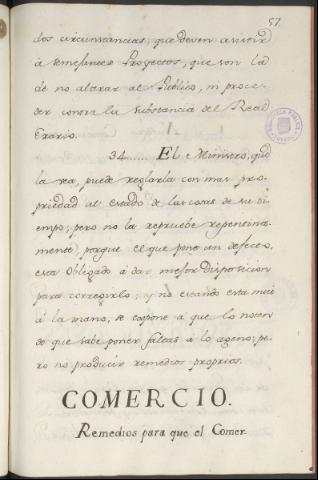 57
dos circunstancias, que deven asistir
à semejantes Proyectos, que son la
de no alterar al Publico, ni proce-
der contra la substancia del Real
Erario.
34...... El Ministro, que
la vea, puede reglarla con mas pro-
priedad al estado de las cosas de su ti-
empo; pero no la reprueve repentina-
mente; porque el que pone un defecto,
esta Obligado à dar mejor Disposicion
para corregirlo; y no estando esta mui
à la mano, se expone à que lo noten
de que sabe poner faltas à lo ageno; pe-
ro no producir remedios proprios.
COMERCIO.
Remedios para que el Comer-